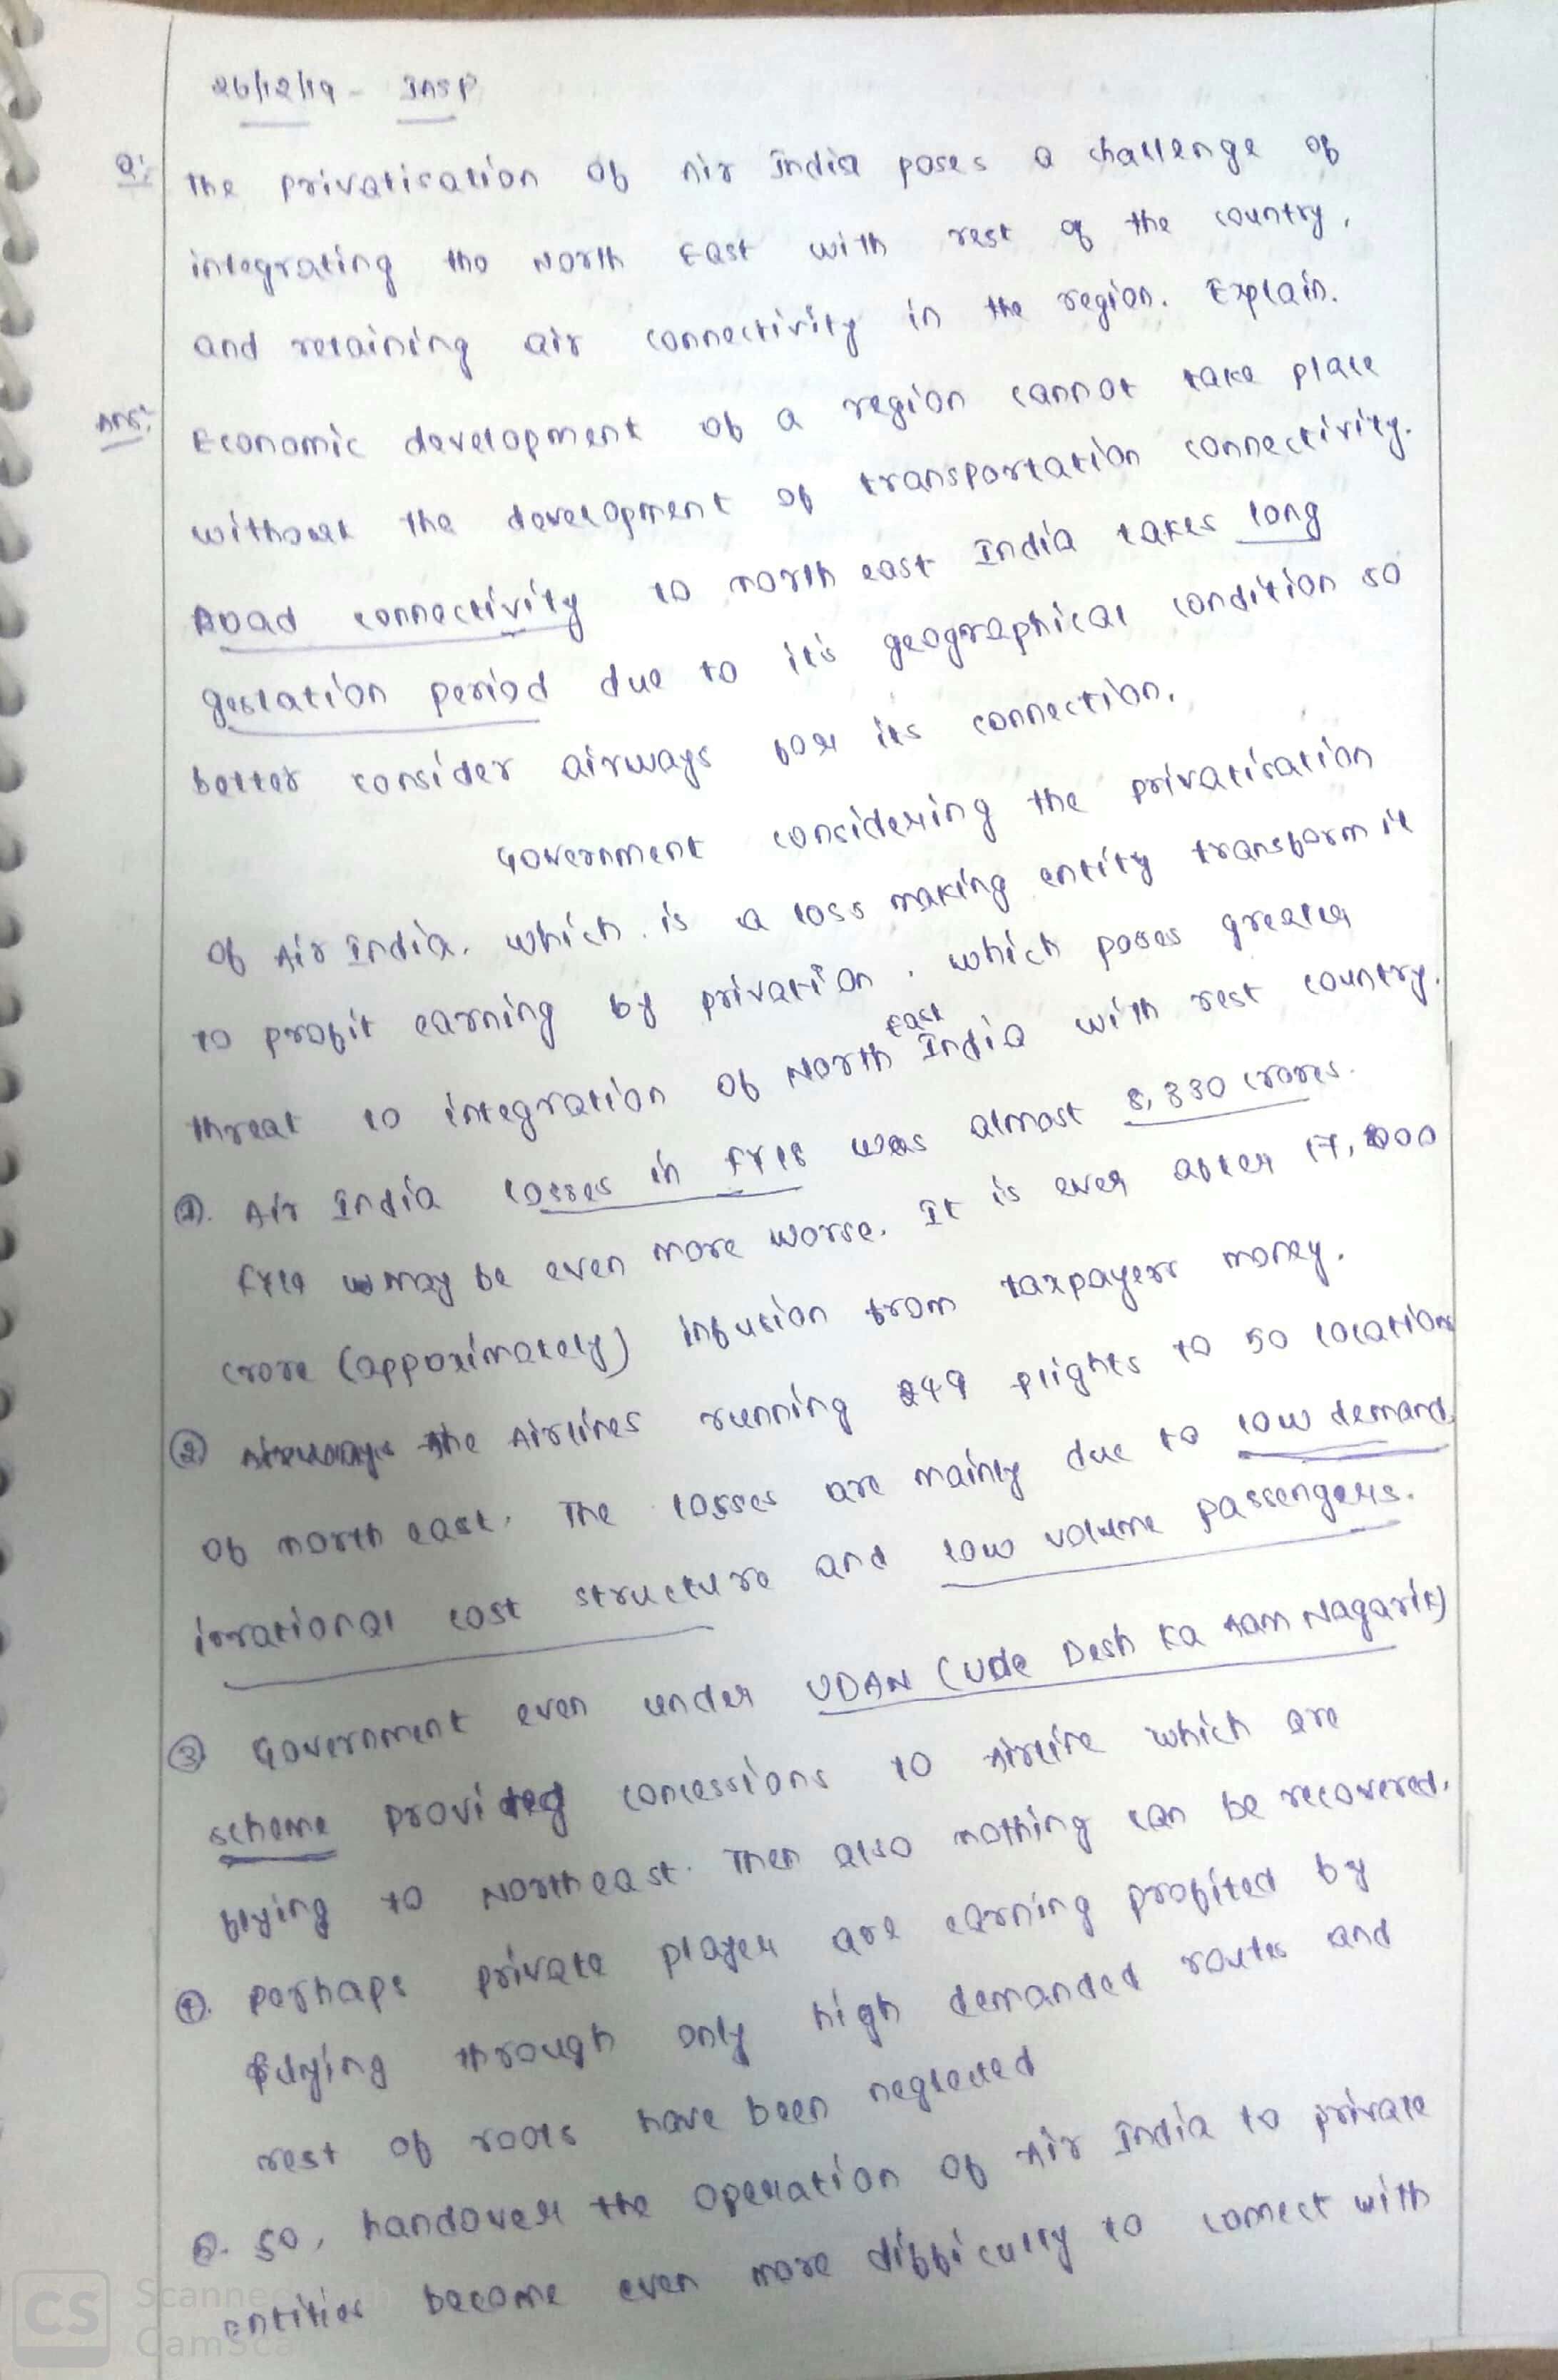 26/12/19 - INSP
Q: The privatisation of Air India poses a challenge of
integrating the North East with rest of the country,
and retaining air connectivity in the region. Explain.
Ans: Economic development of a region cannot take place
without the development of transportation connectivity.
Road connectivity to north east India takes long
gestation period due to it's geographical condition so
better consider airways for its connection.
Government considering the privatisation
of Air India, which is a loss making entity transform it
to profit earning by privation, which poses greater
threat to integration of North East India with rest country.
①. Air India losses in FY18 was almost 8,330 crores.
FY19 may be even more worse. It is ever after 17,000
crore (appoximately) infusion from taxpayers money.
② The Airlines running 249 flights to 50 locations
of north east. The losses are mainly due to low demand,
irrational cost structure and low volume passengers.
③ Government even under UDAN (Ude Desh Ka Aam Nagarik)
scheme provided concessions to Airline which are
flying to Northeast. Then also nothing can be recovered.
④. Perhaps private player are earning profited by
flying through only high demanded routes and
rest of roots have been neglected
⑤. So, handover the operation of Air India to private
entities become even more difficulty to connect with
CS
CamSca